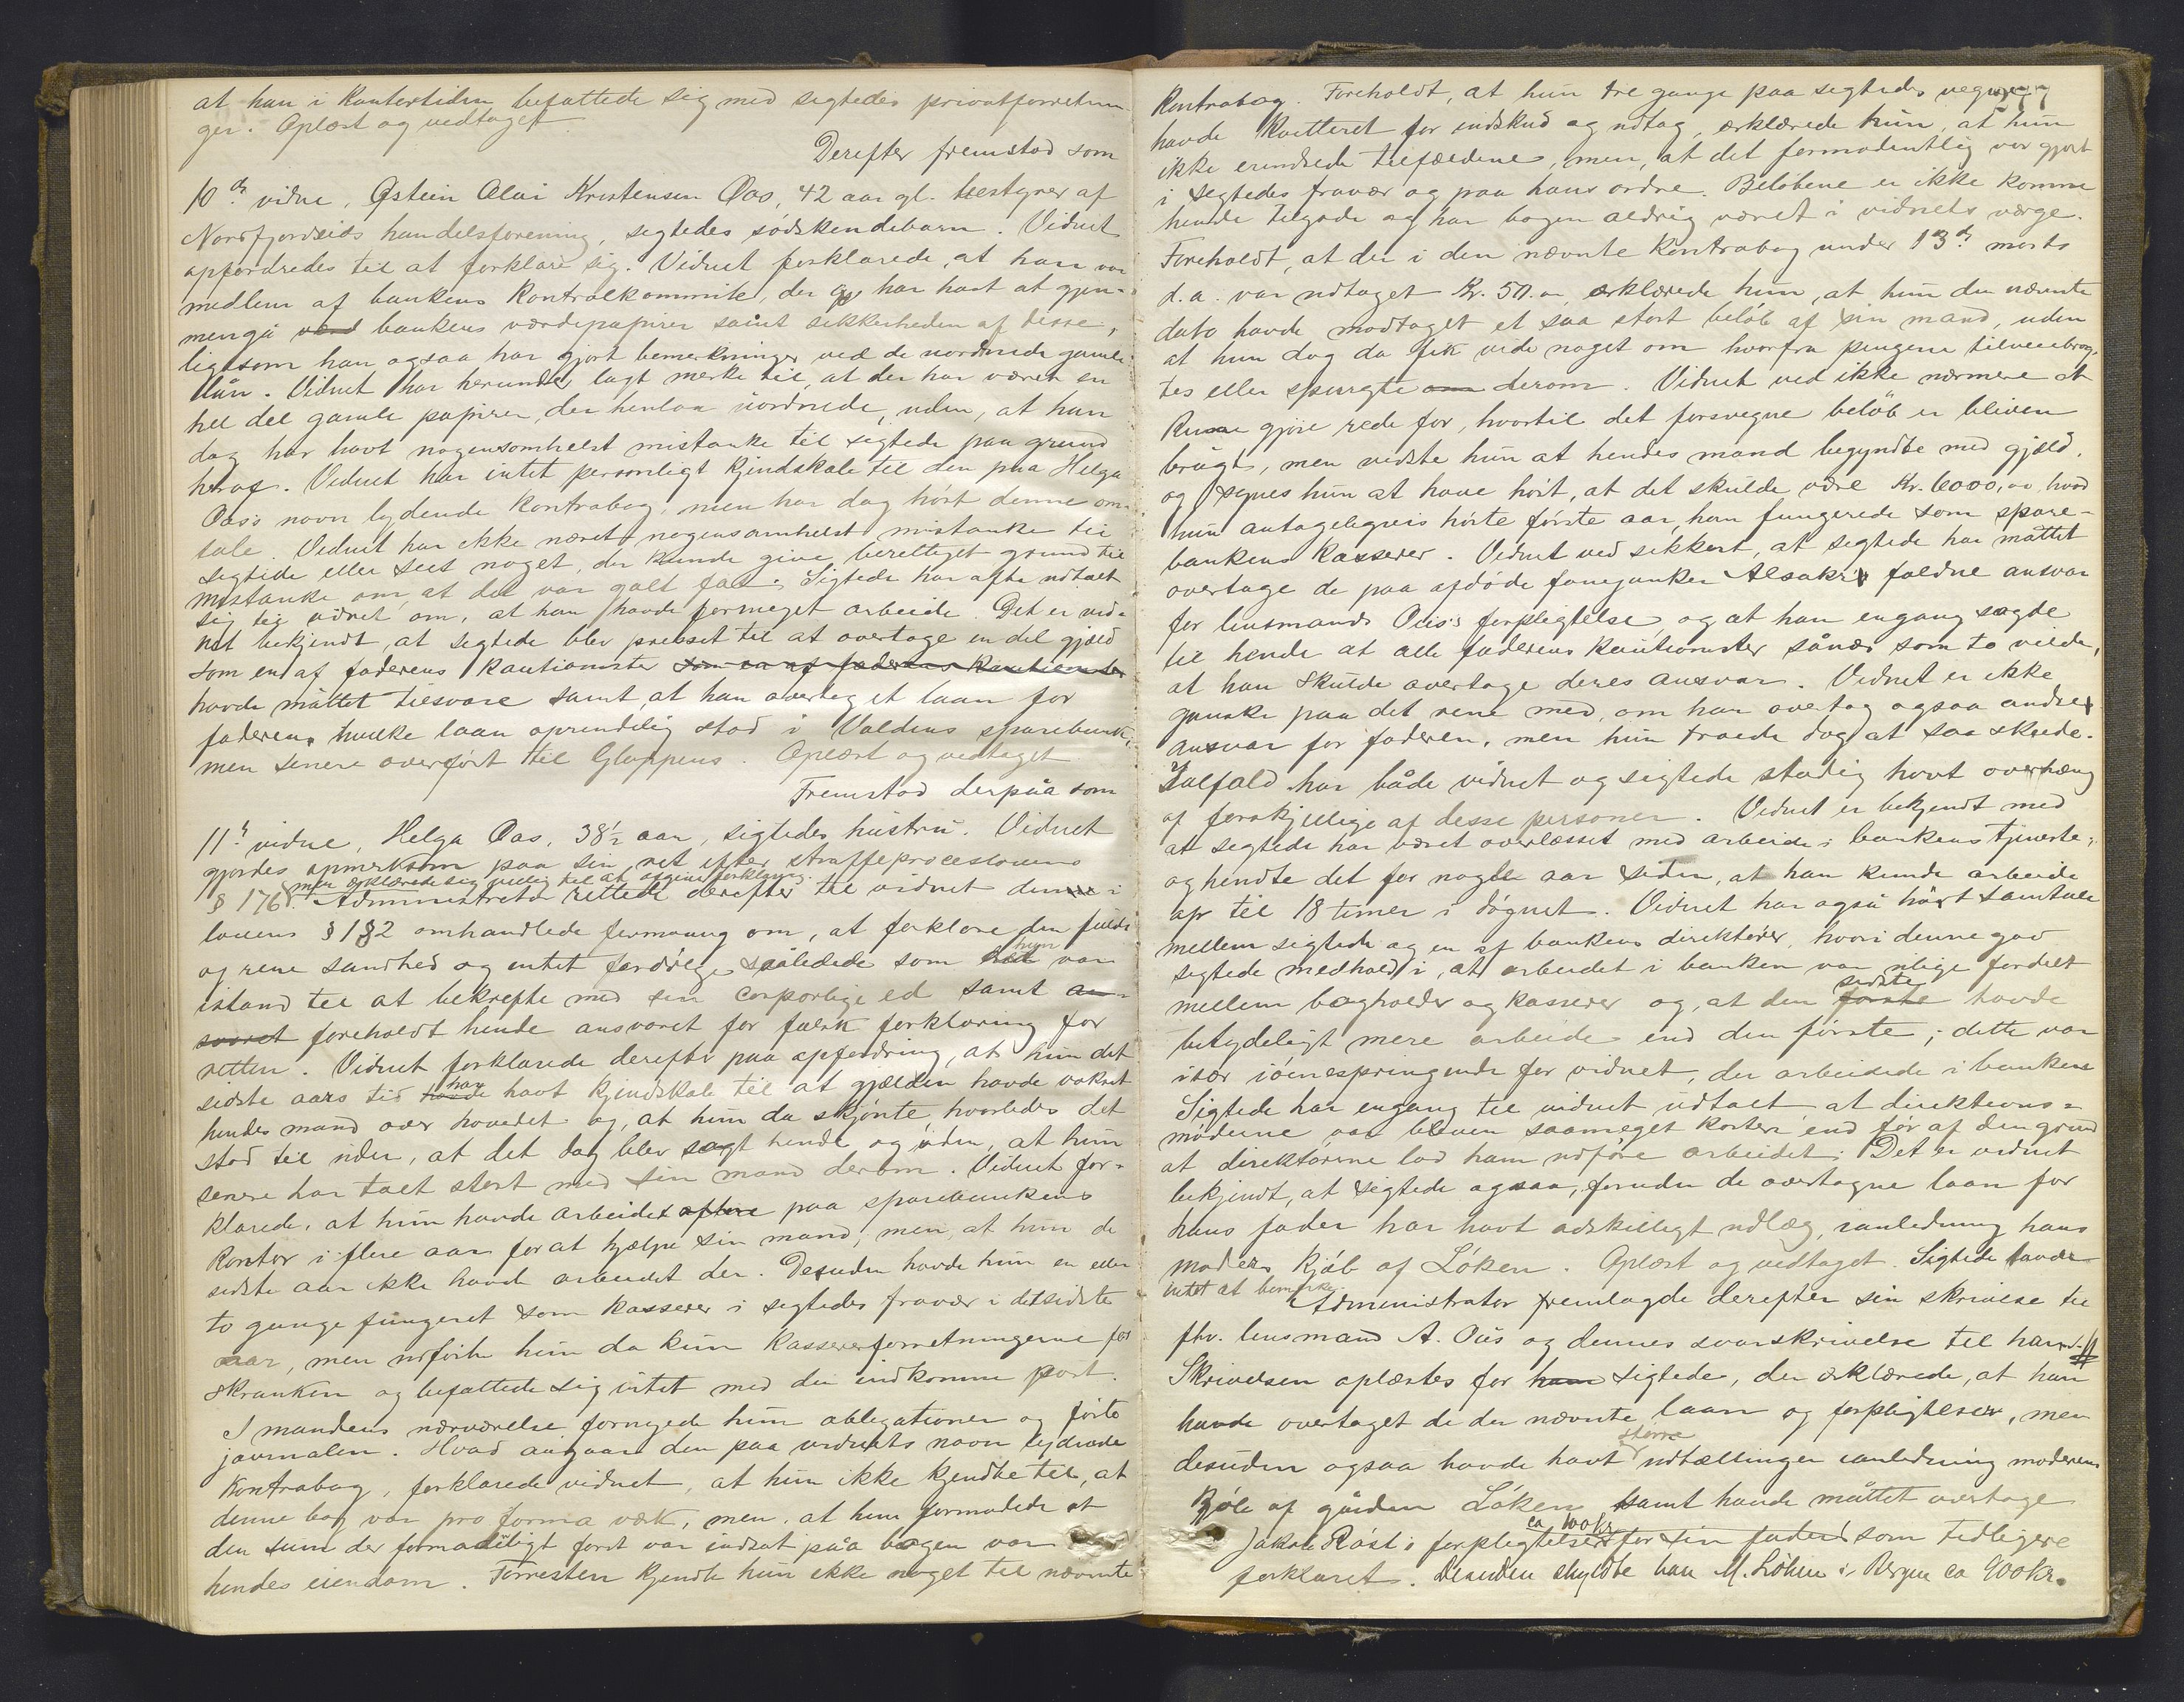 at han i kontortiden befattede sig med sigtedes privatforretnin
ger. Oplæst og vedtaget
Derefter fremstod som
10de vidne, Østein Olai Kristensen Oos, 42 aar gl. bestyrer af
Nordfjordeids handelsforening, sigtedes södskendebarn. Vidnet
opfordredes til at forklare sig. Vidnet forklarede, at han var
medlem af bankens kontrolkommite, der har havt at gjen-
nemgå bankens værdipapirer samt sikkerheden af disse,
ligesom han ogsaa har gjort bemerkninger ved de uordnede gamle
lån. Vidnet har herunder lagt merke til, at der har været en
hel del gamle papirer, der henlaa uordnede, uden, at han
dog har havt nogensomhelst mistanke til sigtede paa grund
heraf. Vidnet har intet personligt kjendskab til den paa Helga
Oos's navn lydende kontrabog, men har dog hört denne om-
tale. Vidnet har ikke næret nogensomhelst mistanke til
sigtede eller seet noget, der kunde give berettiget grund til
mistanke om, at det var galt fat. Sigtede har ofte udtalt
sig til vidnet om, at han havde formeget arbeide. Det er vid-
net bekjendt, at sigtede blev presset til at overtage en del gjæld
som en af faderens kautionister som en af faderens kautionister
havde måttet tilsvare samt at han overtog et laan for
faderen, hvilke laan oprindelig stod i Voldens sparebank,
men senere overfört til Gloppens. Oplæst og vedtaget
Fremstod derpåa som
11te vidne, Helga Oos, 38½ aar, sigtedes hustru. Vidnet
gjordes opmerksom paa sin ret efter straffeproceslovens
men erklærede sig villig til at afgive forklaring.
§ 176. Administrator rettede derefter til vidnet den i
lovens § 182 omhandlede formaning om, at forklare den fulde
og rene sandhed og intet fordölge således som hun var
istand til at bekræfte med sin corporlige ed samt an-
svaret foreholdt hende ansvaret for falsk forklaring for
retten. Vidnet forklarede derefter paa opfordring, at hun det
sidste aars tid havde har havt kjendskab til at gjælden havde vokset
hendes mand over hovedet og, at hun da skjönte, hvorledes det
stod til uden, at det dog blev sagt hende og uden, at hun
senere har talt stort med sin mand derom. Vidnet for-
klarede, at hun havde arbeidet oftere paa sparebankens
kontor i flere aar for at hjælpe sin mand, men, at hun de
sidste aar ikke havde arbeidet der. Desuden havde hun en eller
to gange fungeret som kasserer i sigtedes fravær i det sidste
aar, men udförte hun da kun kassererforretningerne for
skranken og befattede sig intet med den indkomne post.
I mandens nærværelse fornyede hun obligationer og förte
journalen. Hvad angaar den paa vidnets navn lydende
kontrabog, forklarede vidnet, at hun ikke kjendte til, at
denne bog var pro forma værk, men, at hun formodede at
den sum der formodentligt först var indsat på bogen var
hendes eiendom. Forresten kjendte hun ikke noget til nævnte
kontrabog. Foreholdt, at hun tre gange paa sigtedes vegne
havde kvitteret for indskud og udtag, erklærede hun, at hun
ikke erindrede tilfældene, men, at det formodentlig var gjort
i sigtedes fravær og paa hans ordre. Belöbene er ikke komne
hende tilgode og har bogen aldrig været i vidnets værge.
Foreholdt, at der i den nævnte kontrabog under 13de marts
d.a. var udtaget Kr. 50.00, erklærede hun, at hun den nævnte
dato havde modtaget et saa stort belöb af sin mand, uden
at hun dog da fik vide noget om hvorfra pengene tilveiebrag-
tes eller spurgte om derom. Vidnet ved ikke nærmere at
kunne gjöre rede for, hvortil det forsvegne belöb er bleven
brugt, men vidste hun at hendes mand begyndte med gjæld,
og synes hun at have hört, at det skulde være Kr. 6000,00, hvad
hun antageligvis hörte förste aar, han fungerede som spare-
bankens kasserer. Vidnet ved sikkert, at sigtede har måttet
overtage de paa afdöde fanejunker Alsaker faldne ansvar
for lensmand Oos's forpligtelse, og at han engang sagde
til hende at alle faderens kautionister sånær som to vilde,
at han skulde overtage deres ansvar. Vidnet er ikke
ganske paa det rene med, om han overtog ogsaa andres
ansvar for faderen, men hun troede dog at saa skede.
Ialfald har både vidnet og sigtede stadig havt overhæng
af forskjellige af disse personer. Vidnet er bekjendt med
at sigtede har været overlæsset med arbeide i bankens tjeneste,
og hendte det for nogle aar siden, at han kunde arbeide
op til 18 timer i dögnet. Vidnet har også hört samtale
mellem sigtede og en af bankens direktörer, hvori denne gav
sigtede medhold i, at arbeidet i banken var ulige fordelt
mellem bogholder og kasserer og, at den förste sidste havde
betydeligt mere arbeide end den förste; dette var
især iöinespringende for vidnet, der arbeidede i banken
Sigtede har engang til vidnet udtalt, at direktions-
möderne var bleven saameget kortere end för af den grund
at direktörerne lod ham udföre arbeidet. Det er vidnet
bekjendt, at sigtede ogsaa, foruden de overtagne laan for
hans fader har havt adskilligt udlæg, ianledning hans
moders kjöb af Löken. Oplæst og vedtaget. Sigtede havde
intet at bemærke.
Administrator fremlagde derefter sin skrivelse til
fhv. lensmand A. Oos og dennes svarskrivelse til ham.
Skrivelsen oplæstes for ham sigtede, der erklærede, at han
havde overtaget de der nævnte laan og forpligtelser, men
desuden ogsaa havde havt större udtællinger ianledning moderens
kjöb af gården Löken samt havde måttet overtage
Jakob Röst's forpligtelser ca 100 kr for sin fader som tidligere
forklaret. Desuden skyldte han M. Löken i Bergen ca 900 kr.